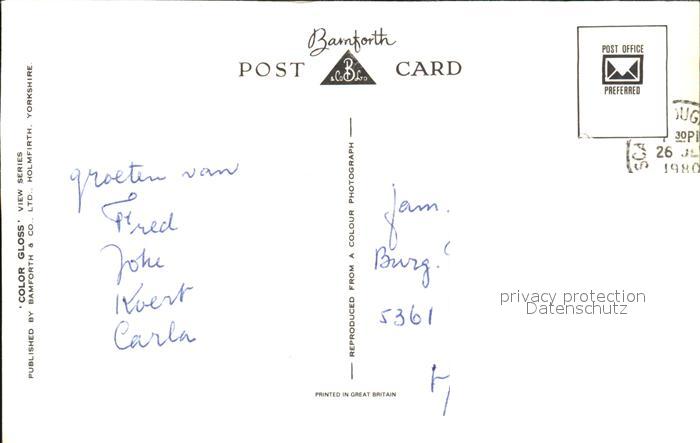 Bamforth
POST CARD
& Co B LTD
POST OFFICE
PREFERRED
30PM
26 JE
1980
'COLOR GLOSS' VIEW SERIES
PUBLISHED BY BAMFORTH & CO., LTD., HOLMFIRTH, YORKSHIRE
groeten van
Fred
Joke
Koert
Carla
REPRODUCED FROM A COLOUR PHOTOGRAPH
fam.
Burg.
5361
privacy protection
Datenschutz
PRINTED IN GREAT BRITAIN